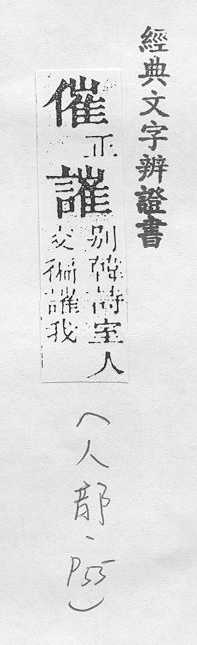 經典文字辨證書
催正
讙別韓詩室人
交徧讙我
(人部、P55)